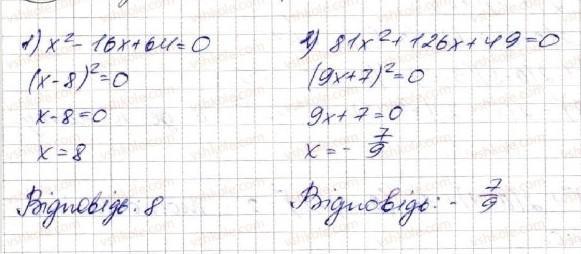 1) x² - 16x + 64 = 0
(x - 8)² = 0
x - 8 = 0
x = 8
Відповідь: 8
2) 81x² + 126x + 49 = 0
(9x + 7)² = 0
9x + 7 = 0
x = - 7/9
Відповідь: - 7/9